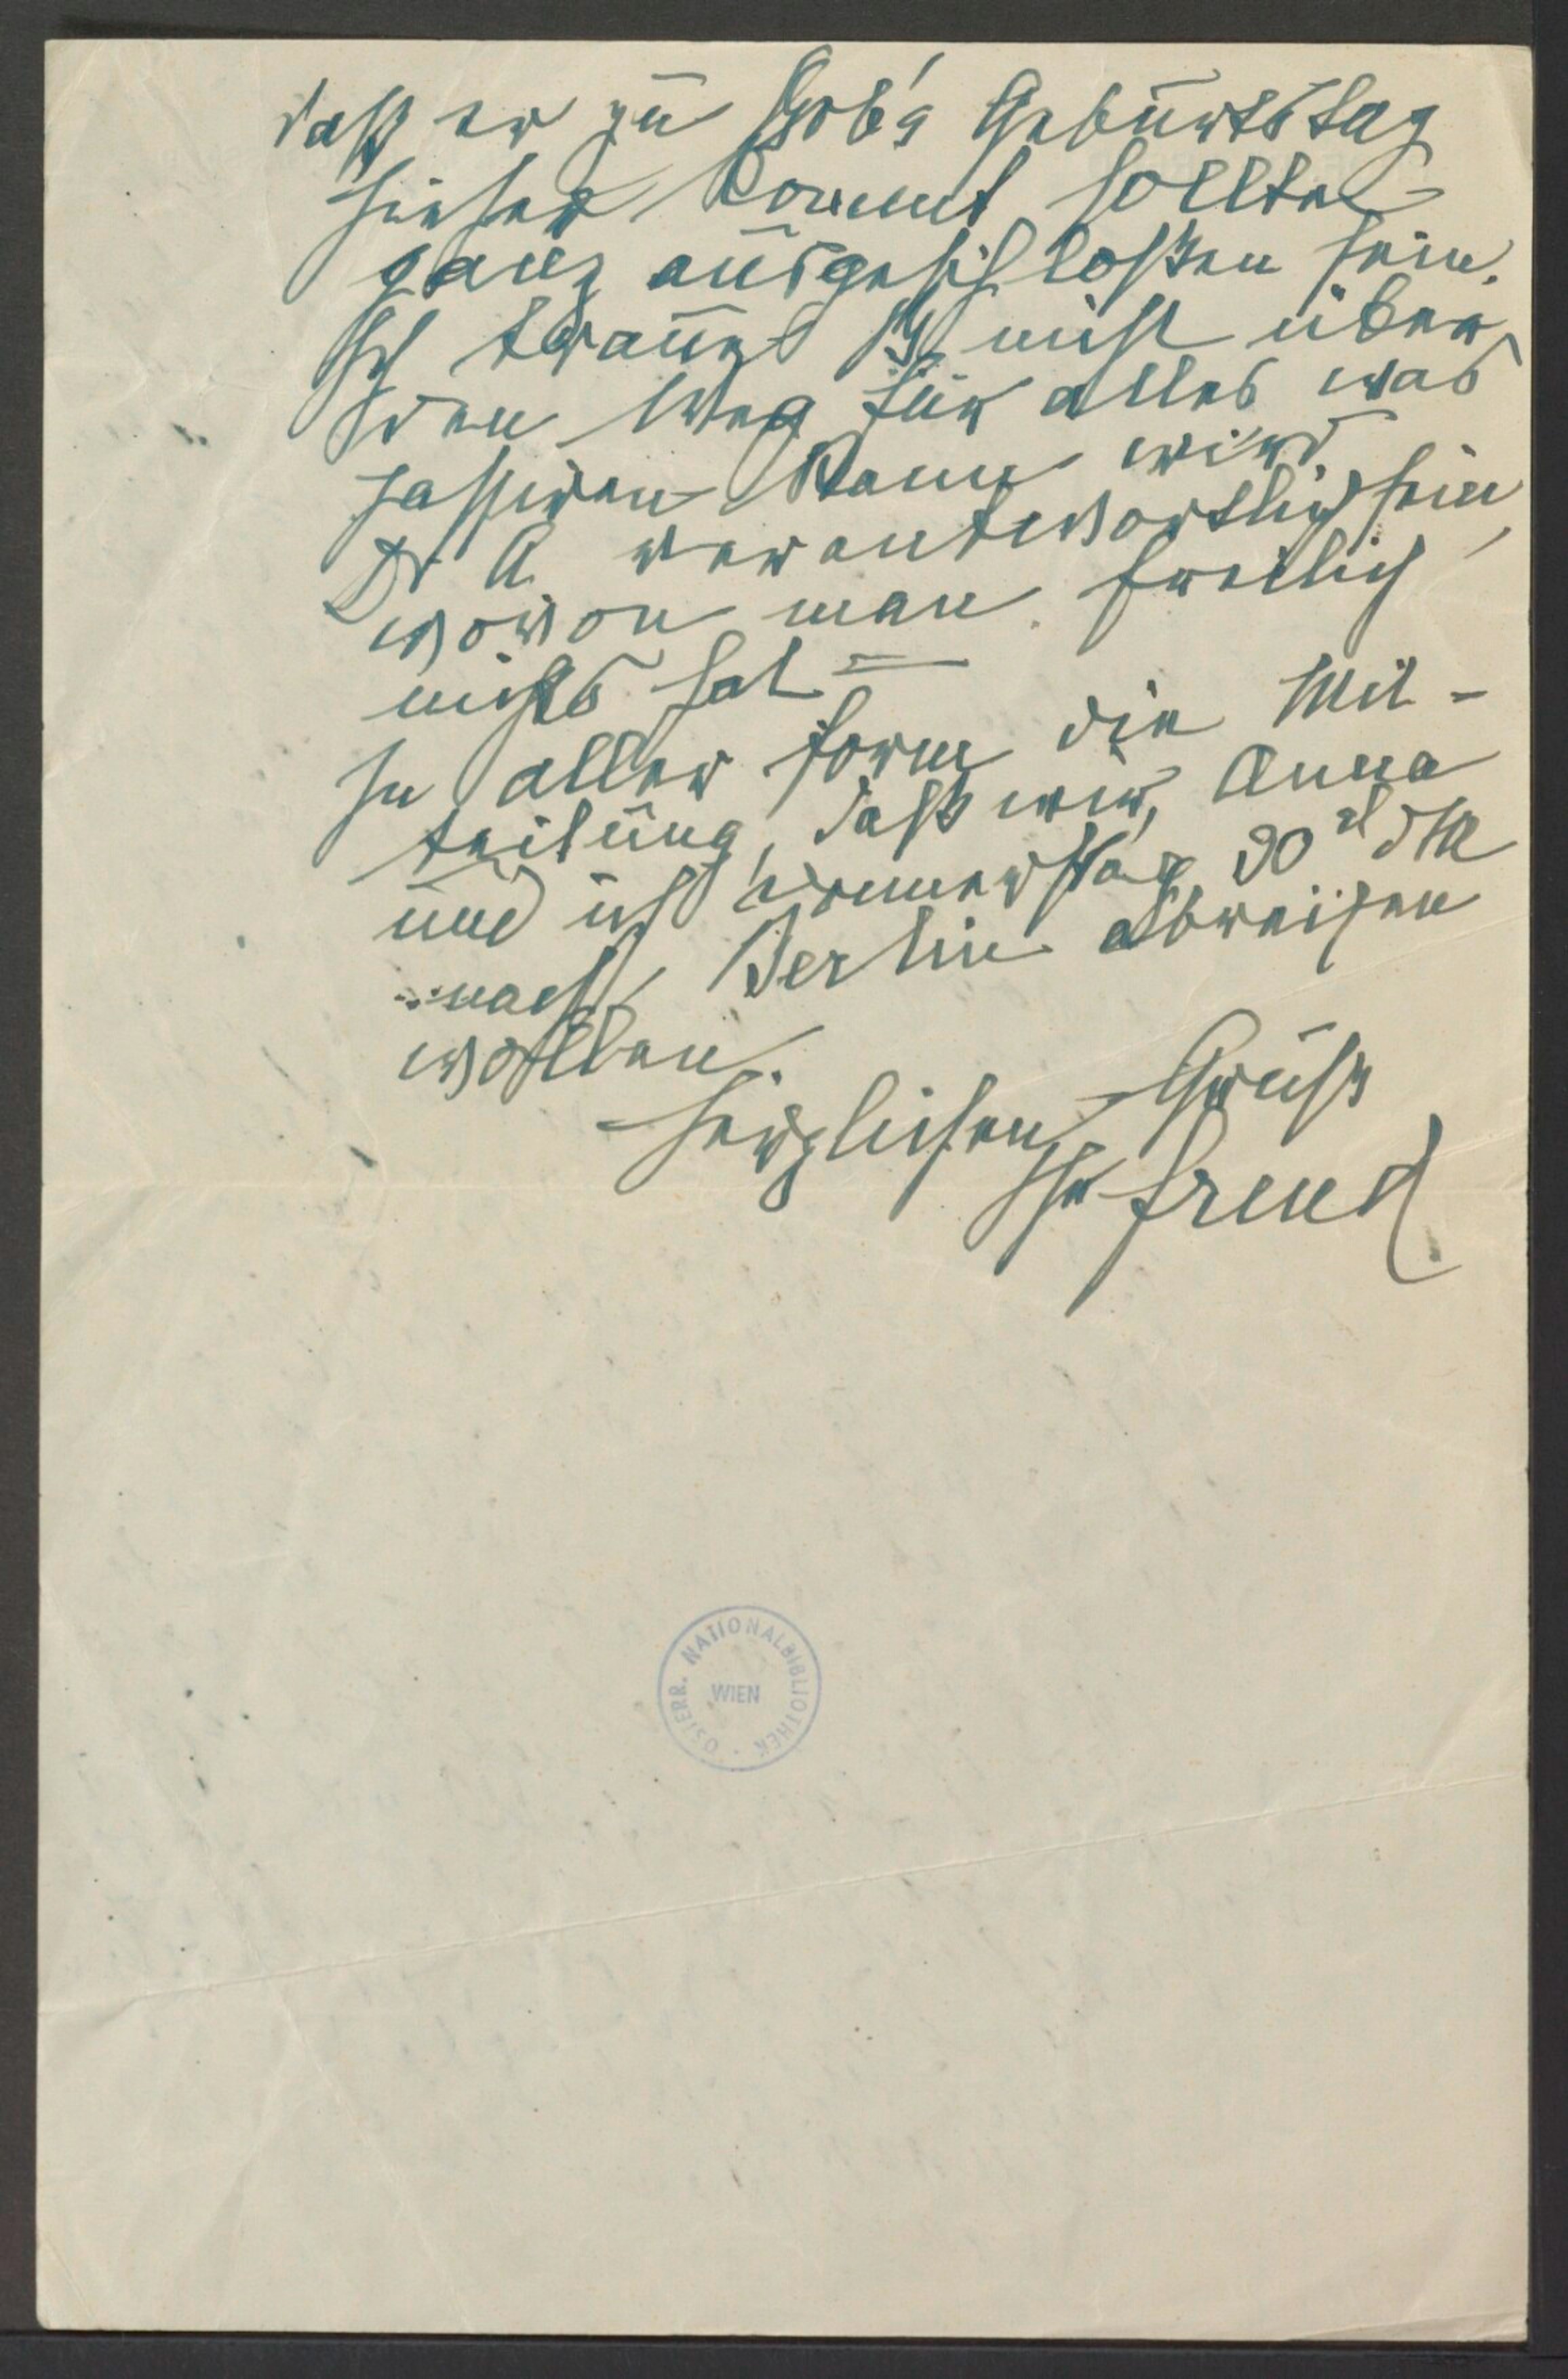 daß er zu Bob's Geburtstag
hieher kommt, sollte
ganz ausgeschloßen sein.
Ich traue ihm nicht über
den Weg. Für alles was
passiren kann wird
Dr A. verantwortlich sein,
wovon man freilich
nichts hat –
In aller Form die Mit-
teilung, daß wir, Anna
und ich Donnerstag 30 d M
nach Berlin abreisen
wollen.
Herzlichen Gruß
Ihr Freud
ÖSTERR. NATIONALBIBLIOTHEK
WIEN